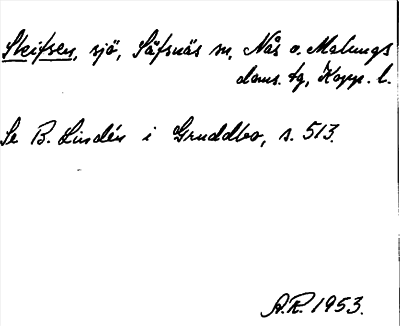 Skifsen, sjö, Säfsnäs sn, Nås o. Malungs
doms. tg, Kopp. l.
Se B. Lindén i Gruddbo, s. 513.
A.R. 1953.